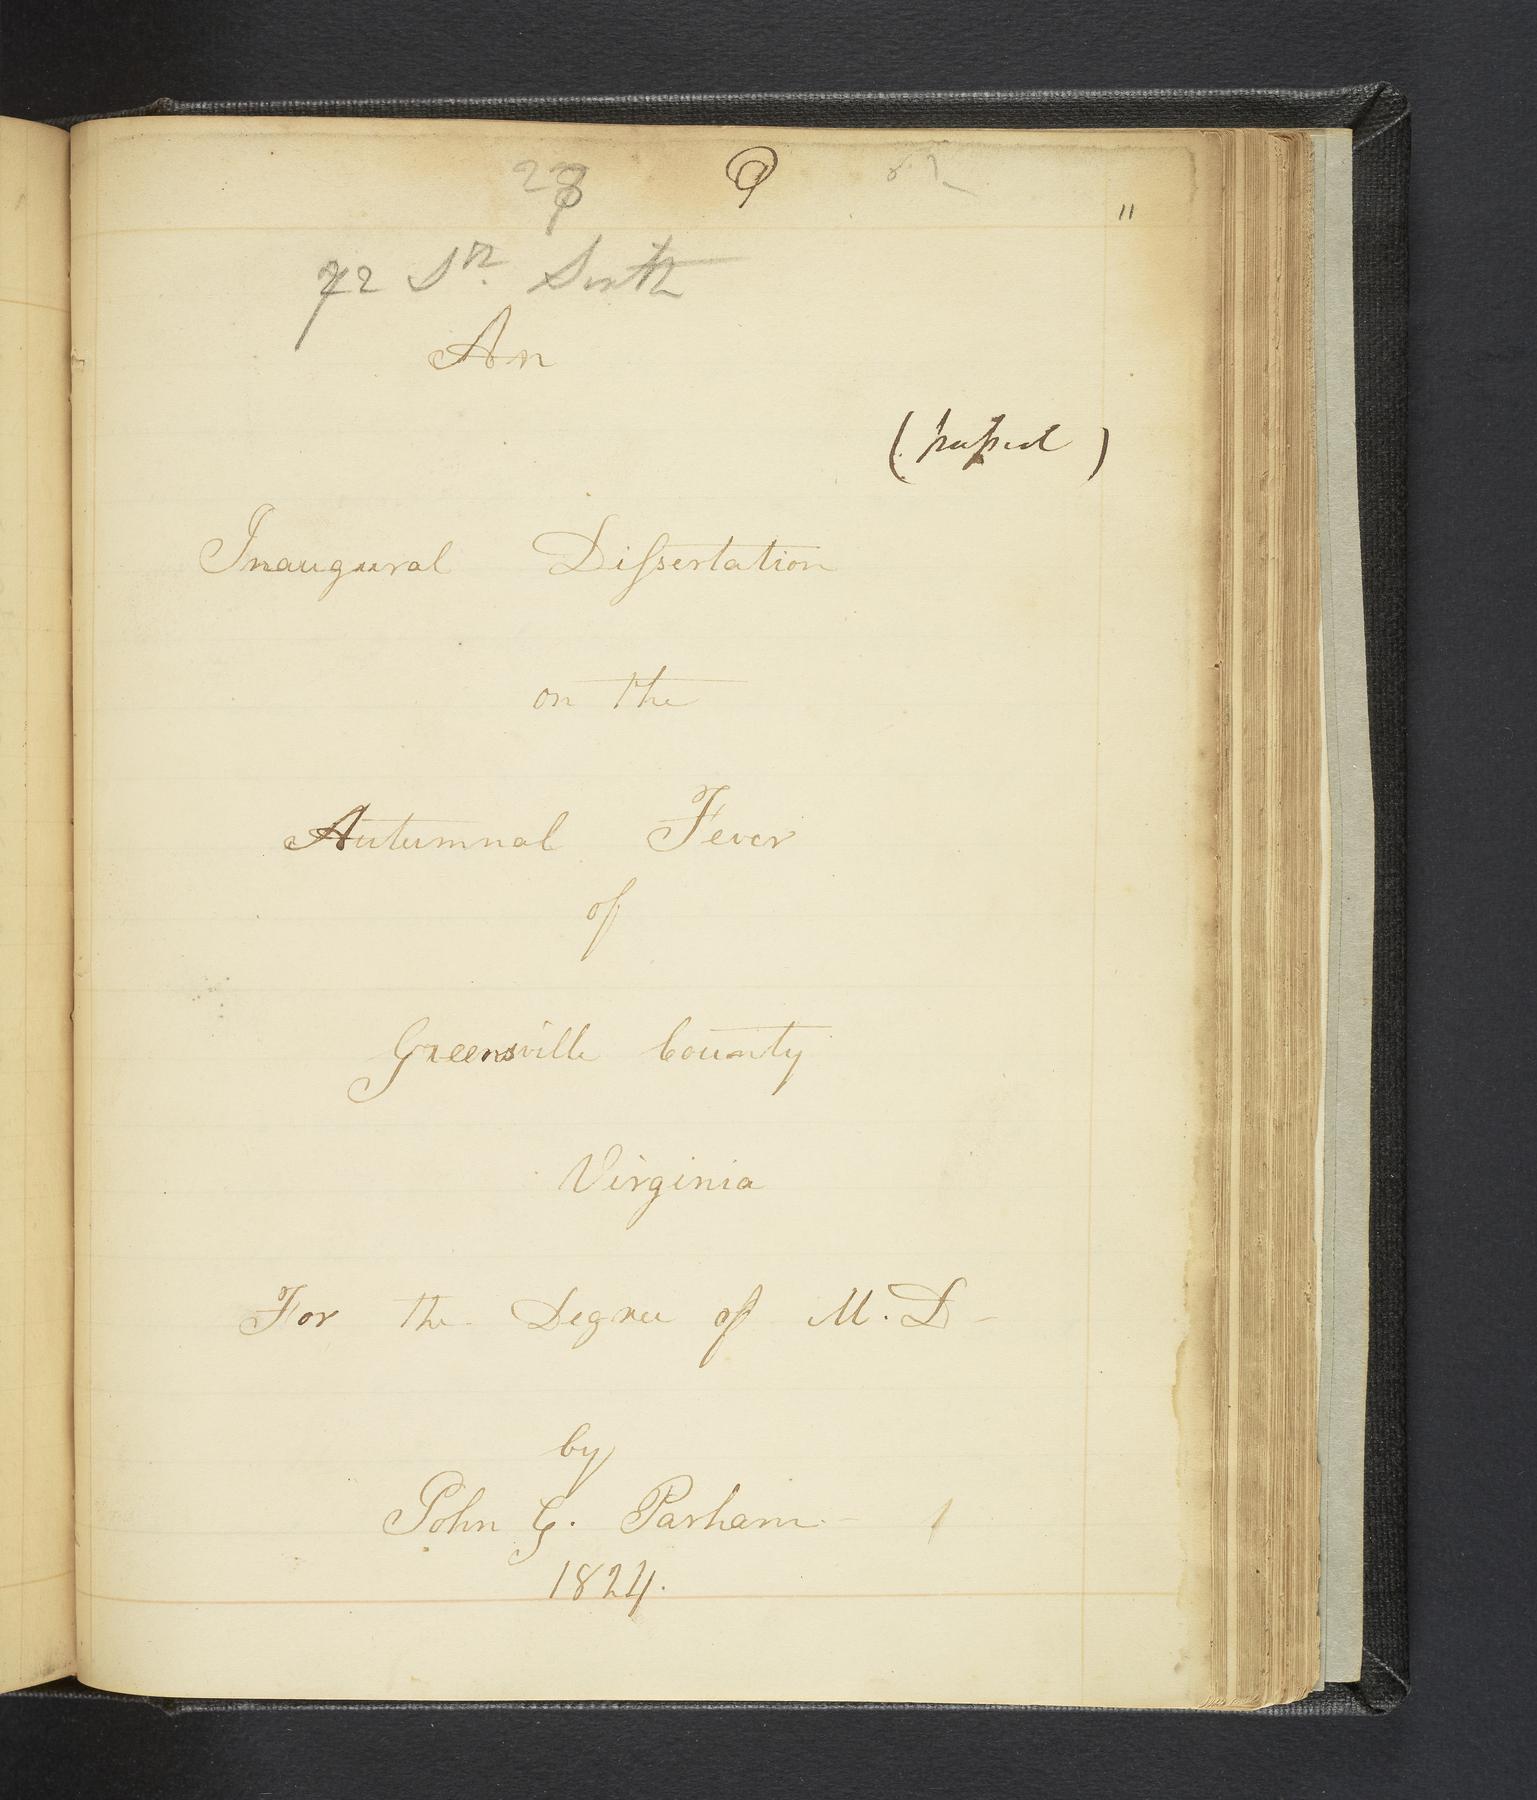 9
11
An
Inaugural Dissertation
on the
Autumnal Fever
of
Greensville County
Virginia
For the Degree of M. D
by
John G. Parham
1824.